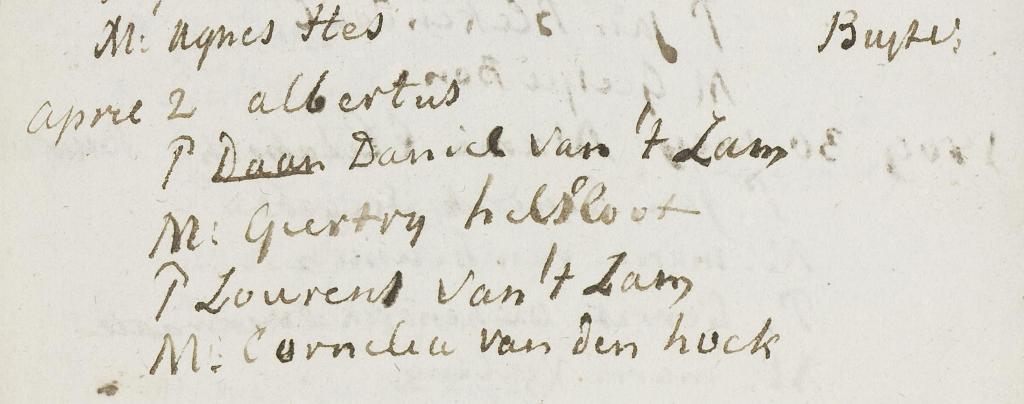 M: Agnes Hes Buyte:
april 2 albertus
P Daan Daniel van 't Zam
M: Geertry helsloot
P Lourens van 't Zam
M: Cornelia van den hoek